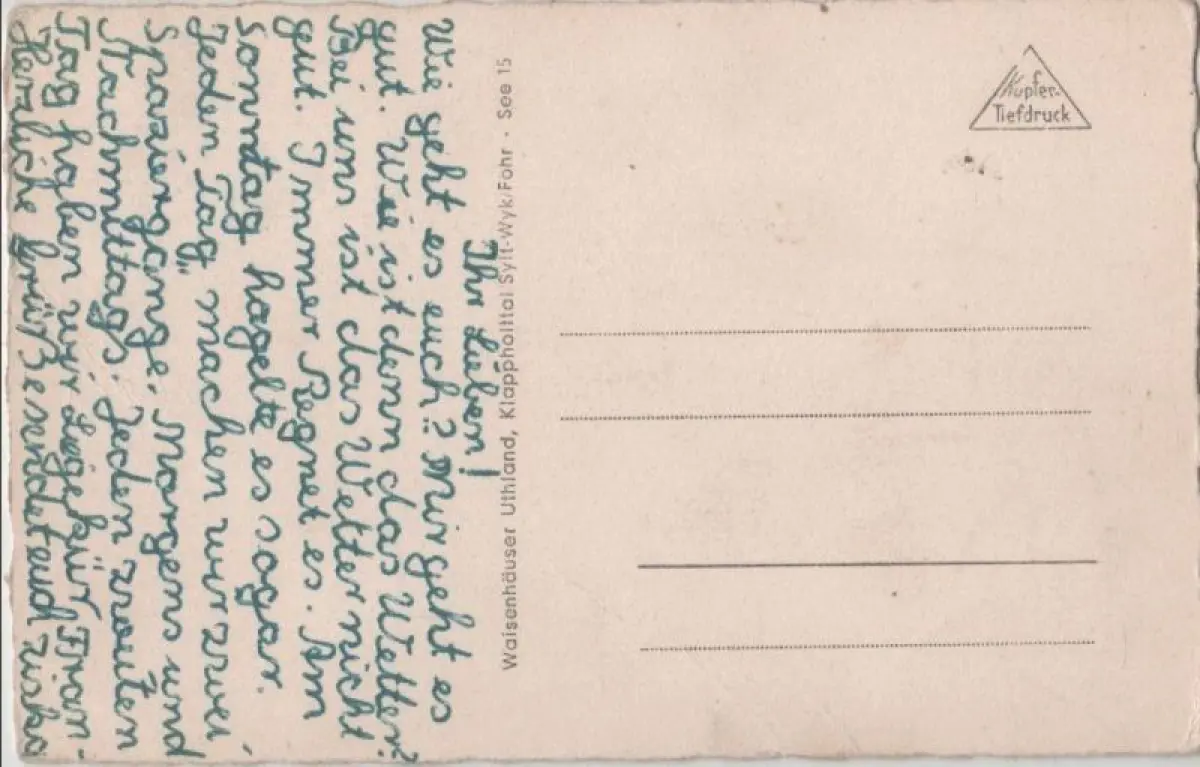 Ihr Lieben!
Wie geht es euch? Mir geht es
gut. Wie ist denn das Wetter?
Bei uns ist das Wetter nicht
gut. Immer Regnet es. Am
Sonntag hagelte es sogar.
Jeden Tag machen wir zwei
Spaziergänge. Morgens und
Nachmittags. Jeden zweiten
Tag haben wir Liegekür. Fran-
Herzliche Grüße sendet euch ziska
Waisenhäuser Uthland, Klappholttal Sylt-Wyk/Föhr · See 15
Kupfer-
Tiefdruck